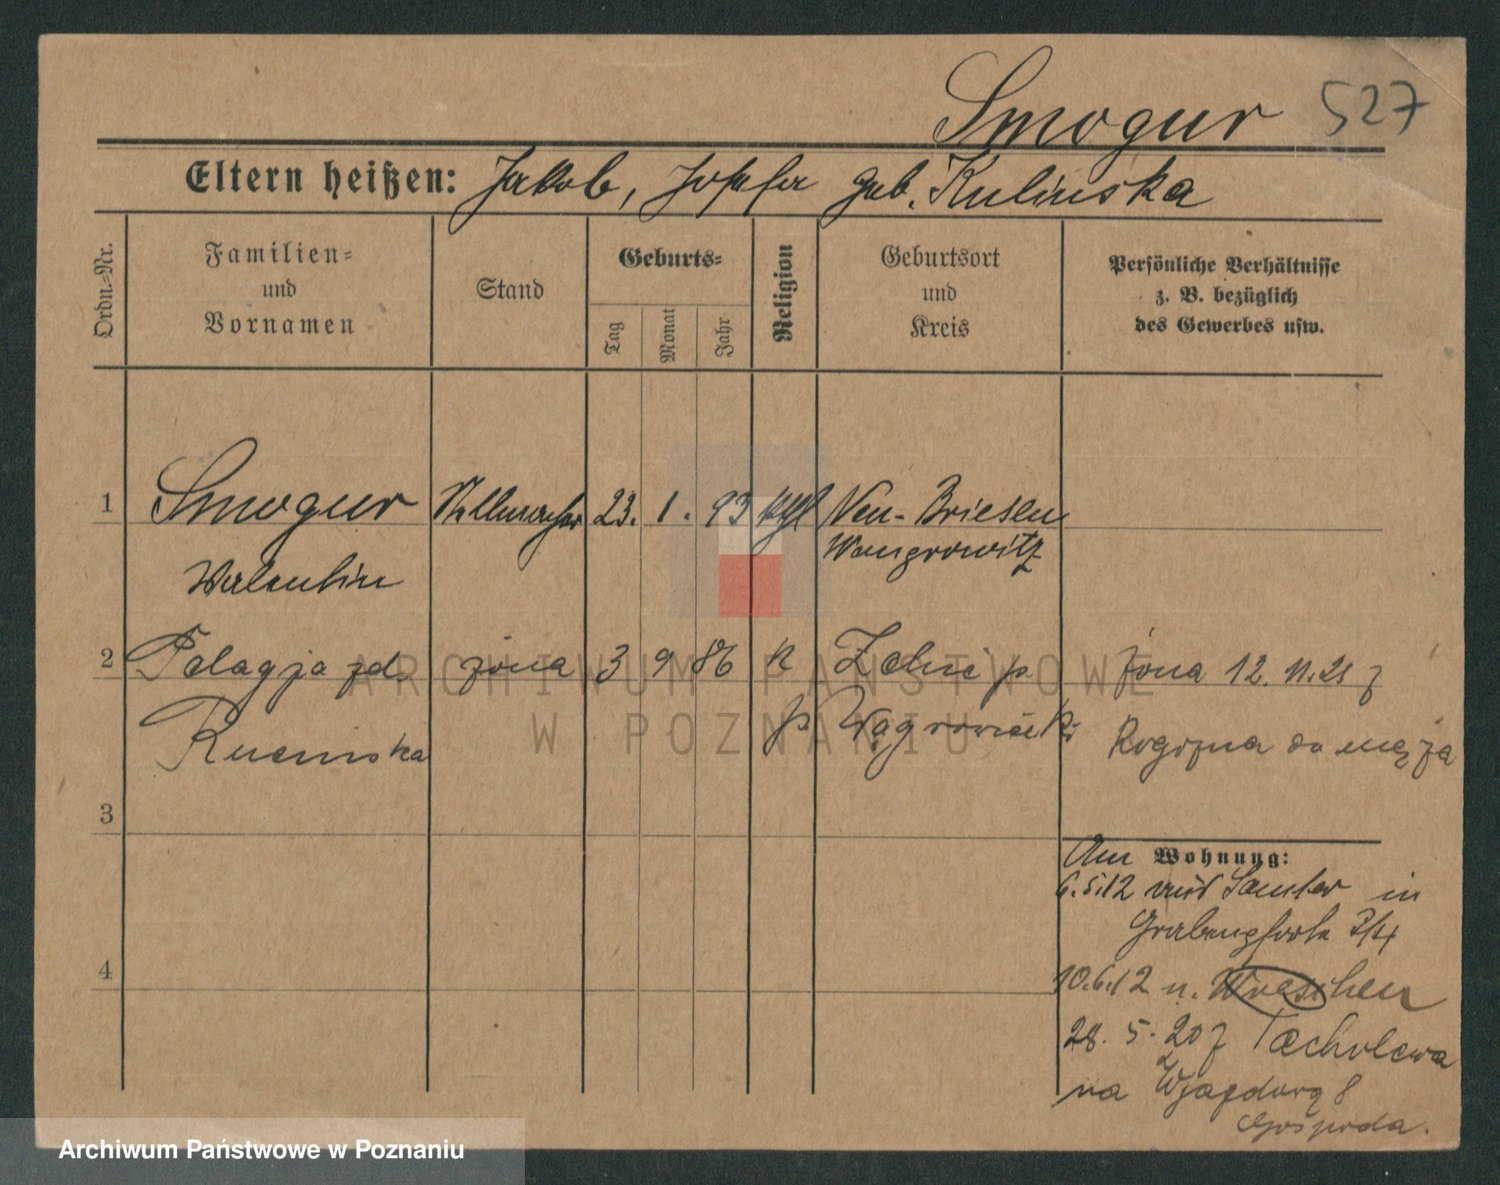 Smogur 527
Eltern heißen: Jakob, Josefa geb. Kulinska
Ordn.-Nr.
Familien-
und
Vornamen
Stand
Geburts-
Tag
Monat
Jahr
Religion
Geburtsort
und
Kreis
Persönliche Verhältnisse
z. B. bezüglich
des Gewerbes usw.
1 Smogur Stellmacher 23. 1. 93 kath Neu-Briesen
Wongrowitz
Valentin
2 Pelagja zd. żona 3 9 86 k Żelice p.
Rucinska p. Wągrowiecki
żona 12. 11. 21 z
Rogozna do męża
3
4
Am Wohnung:
6.5.12 aus Samter in
Grabenpforte 3/4
10.6.12 n. Wreschen
28. 5. 20 z Tacholewa
na Wjazdową 8
Gospoda.
ARCHIWUM PAŃSTWOWE
W POZNANIU
Archiwum Państwowe w Poznaniu